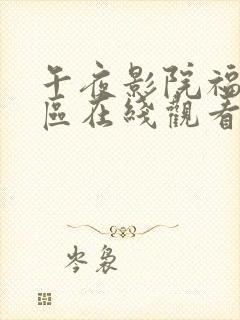 午夜影院福
區在綫觀看
岑裊